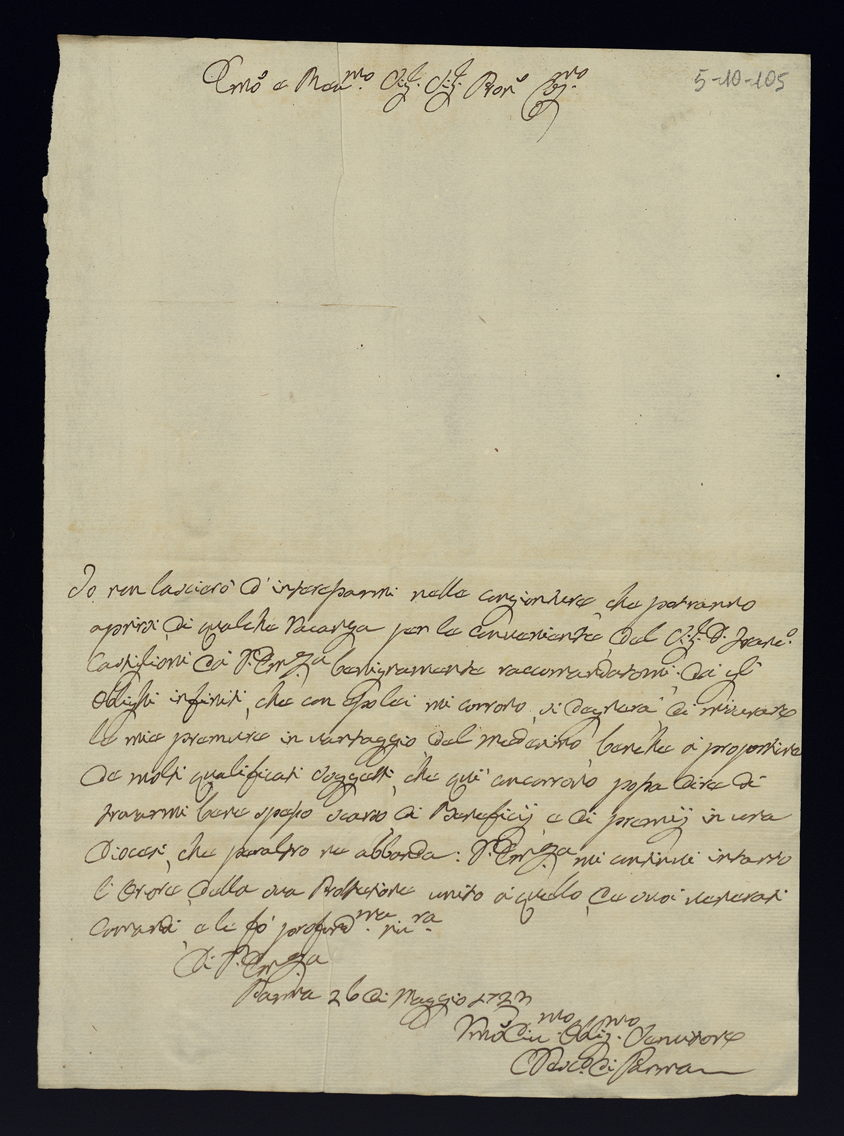 5-10-105
Em̃o e Reu.mo Sig.r Sig.r Pron.e Col.mo
Io non lasciarò d'interessarmi nelle congionture che potranno
aprirsi di qualche Vacanza per le convenienze del Sig.r D. Franc.o
Castiglioni da V. Em.za benignamente raccomandatomi. Da gl'
Oblighi infiniti, che con Esso lei mi corrono, si degnarà di misurare
le mie premure in vantaggio del medesimo, benche a proportione
de molti qualificati Soggetti, che qui concorrono, possa dire di
trovarmi bene spesso scarso di Beneficij, e di premij in una
Diocesi, che peraltro ne abbonda: V. Em.za mi continui intanto
l'Onore della sua Protezione unito a quello de suoi venerati
comandi, e le fò profond.ma riu.za
Di V. Em.za
Parma 26 di Maggio 1723
Um̃o Diu.mo Oblig.mo Seruitore
Vesc.o di Parma